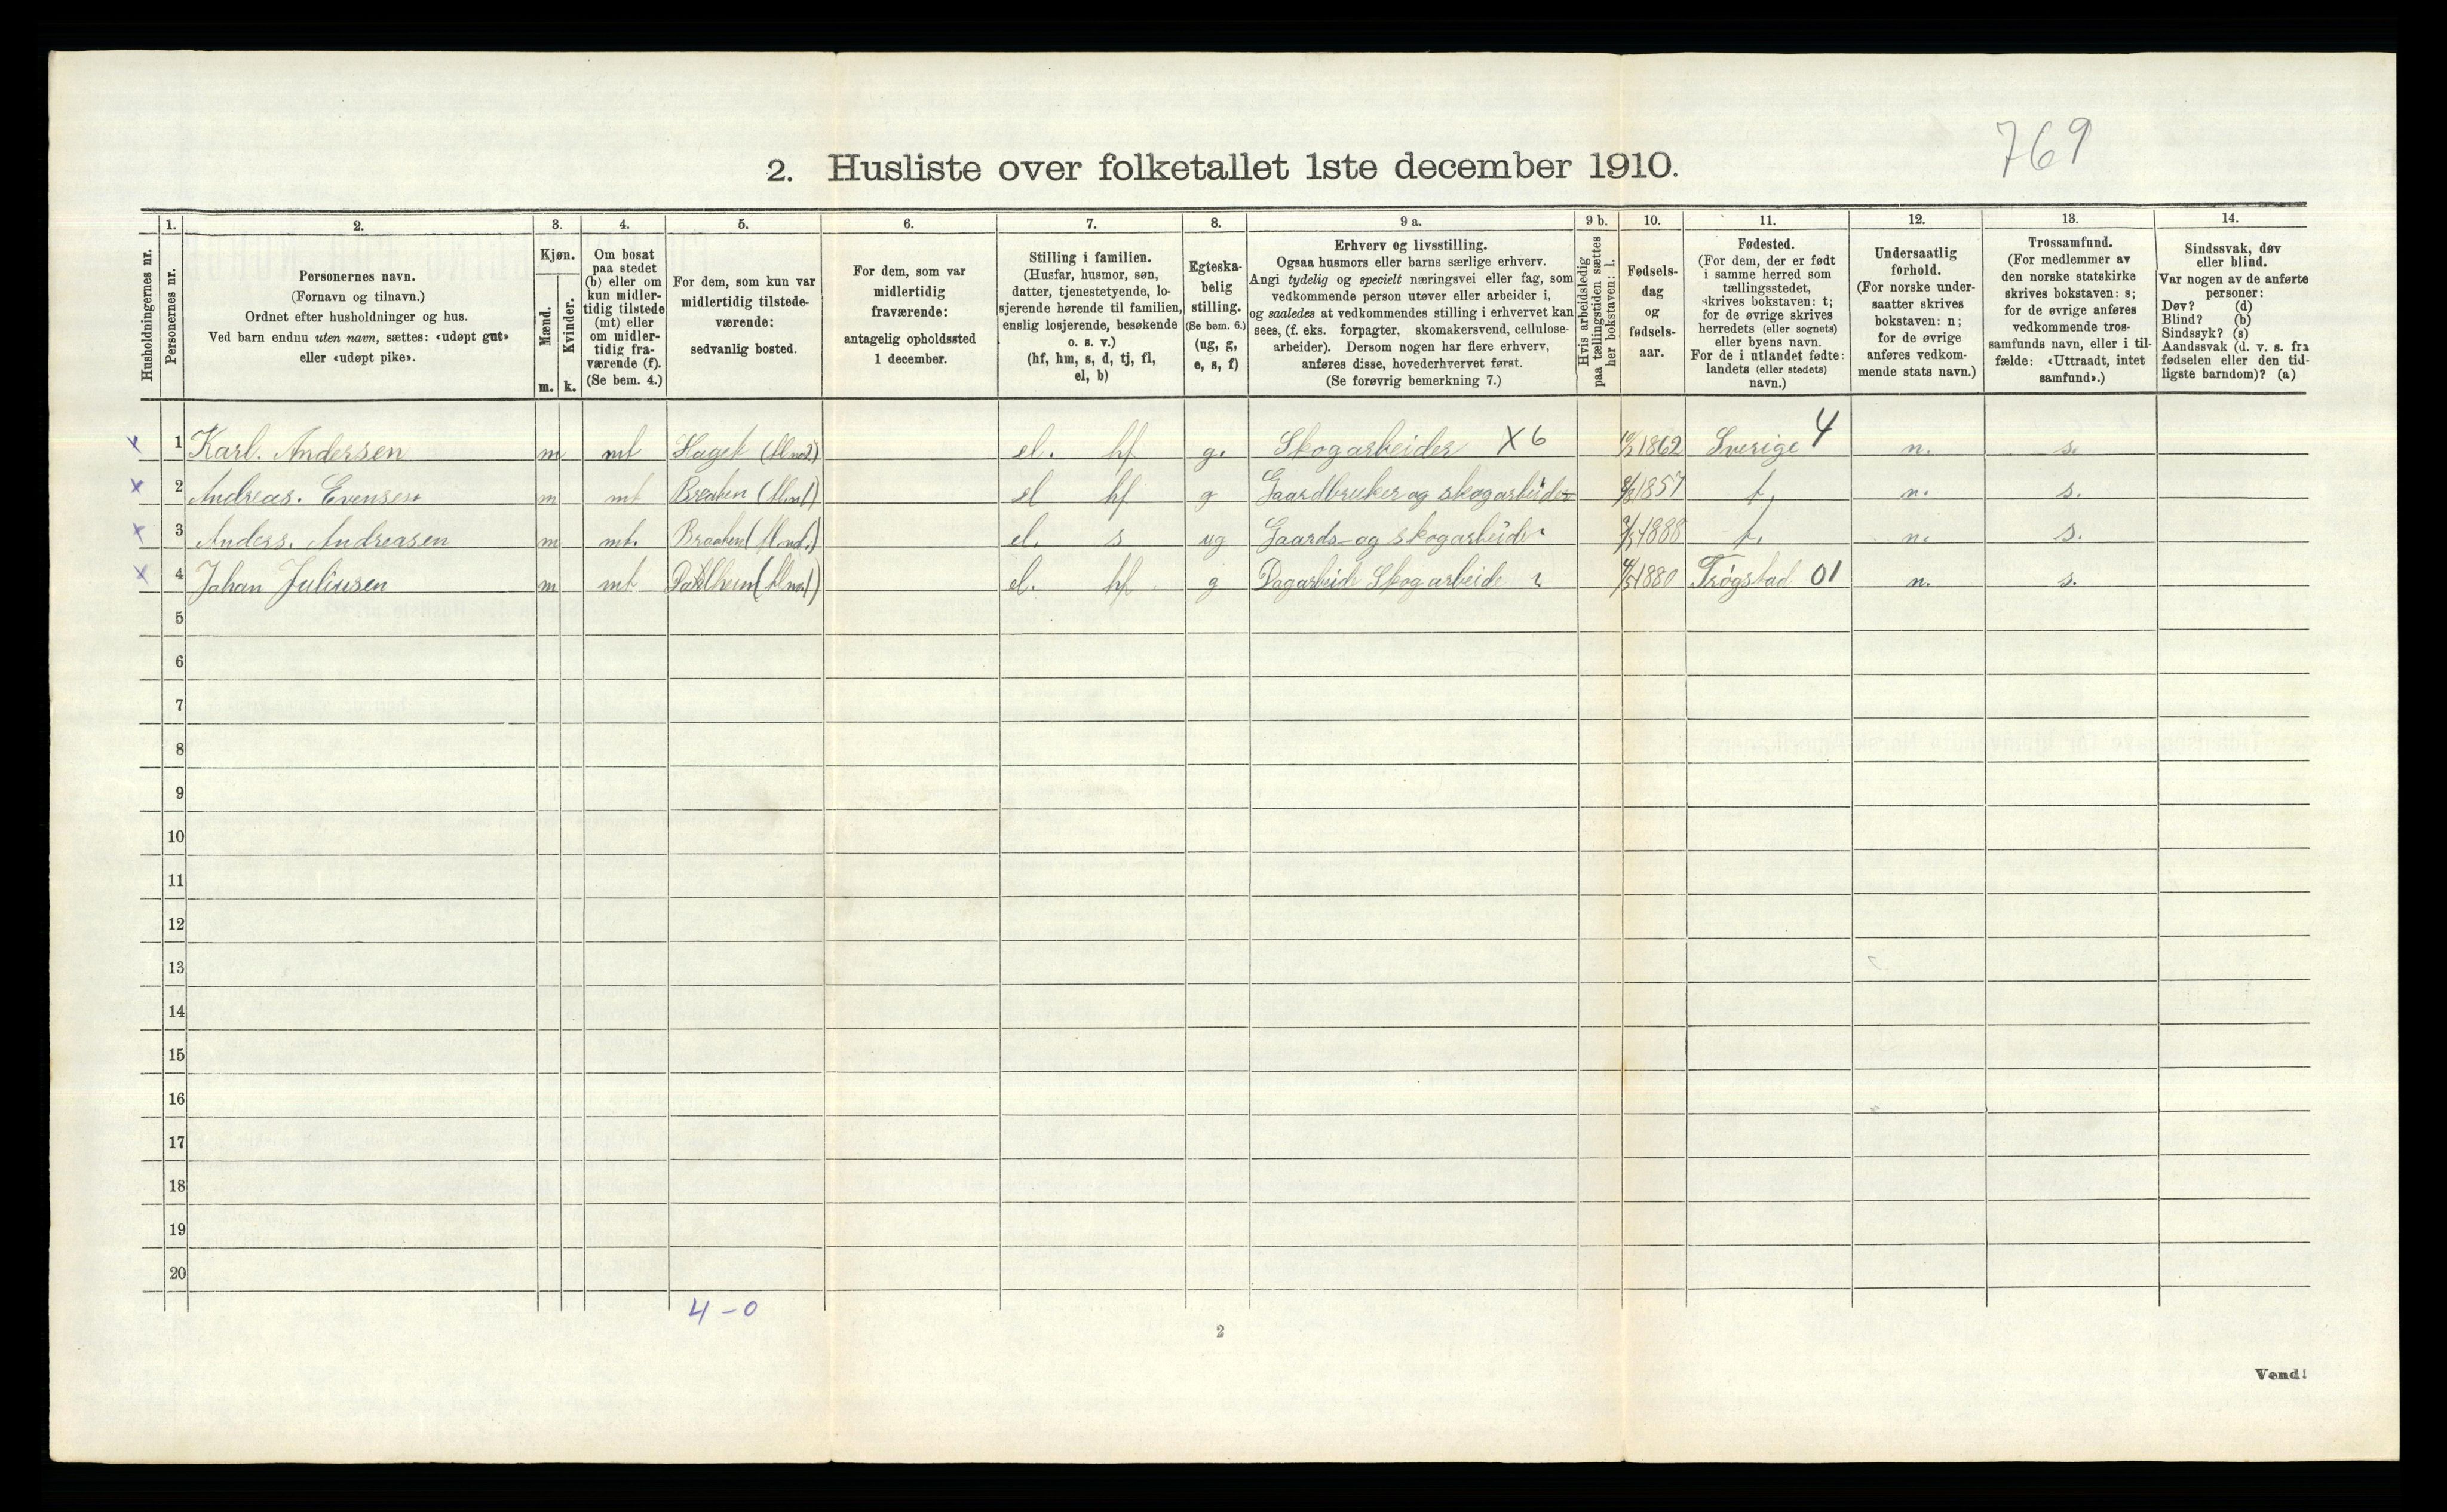 769
2. Husliste over folketallet 1ste december 1910.
1. 2. 3. 4. 5. 6. 7. 8. 9 a. 9 b. 10. 11. 12. 13. 14.
Husholdningernes nr.
Personernes nr.
Personernes navn.
(Fornavn og tilnavn.)
Ordnet efter husholdninger og hus.
Ved barn endnu uten navn, sættes: «udøpt gut»
eller «udøpt pike».
Kjøn.
Mænd.
Kvinder.
m. k.
Om bosat
paa stedet
(b) eller om
kun midler-
tidig tilstede
(mt) eller
om midler-
tidig fra-
værende (f).
(Se bem. 4.)
For dem, som kun var
midlertidig tilstede-
værende:
sedvanlig bosted.
For dem, som var
midlertidig
fraværende:
antagelig opholdssted
1 december.
Stilling i familien.
(Husfar, husmor, søn,
datter, tjenestetyende, lo-
sjerende hørende til familien,
enslig losjerende, besøkende
o. s. v.)
(hf, hm, s, d, tj, fl,
el, b)
Egteska-
belig
stilling.
(Se bem. 6.)
(ug, g,
e, s, f)
Erhverv og livsstilling.
Ogsaa husmors eller barns særlige erhverv.
Angi tydelig og specielt næringsvei eller fag, som
vedkommende person utøver eller arbeider i,
og saaledes at vedkommendes stilling i erhvervet kan
sees, (f. eks. forpagter, skomakersvend, cellulose-
arbeider). Dersom nogen har flere erhverv,
anføres disse, hovederhvervet først.
(Se forøvrig bemerkning 7.)
Hvis arbeidsledig
paa tællingstiden sættes
her bokstaven: l.
Fødsels-
dag
og
fødsels-
aar.
Fødested.
(For dem, der er født
i samme herred som
tællingsstedet,
skrives bokstaven: t;
for de øvrige skrives
herredets (eller sognets)
eller byens navn.
For de i utlandet fødte:
landets (eller stedets)
navn.)
Undersaatlig
forhold.
(For norske under-
saatter skrives
bokstaven: n;
for de øvrige
anføres vedkom-
mende stats navn.)
Trossamfund.
(For medlemmer av
den norske statskirke
skrives bokstaven: s;
for de øvrige anføres
vedkommende tros-
samfunds navn, eller i til-
fælde: «Uttraadt, intet
samfund».)
Sindssvak, døv
eller blind.
Var nogen av de anførte
personer:
Døv? (d)
Blind? (b)
Sindssyk? (s)
Aandssvak (d. v. s. fra
fødselen eller den tid-
ligste barndom)? (a)
x 1 Karl. Andersen m mt Haget el. hf g. Skogarbeider X6 1862 Sverige 4 n. s.
x 2 Andreas. Evensen m mt Braaten el hf g Gaardbruker og skogarbeider 1857 t, n. s.
x 3 Anders. Andreasen m mt. Braaten el. s ug Gaards- og skogarbeider 1888 t. n. s.
x 4 Johan Juliusen m mt el. hf g Dagarbeide Skogarbeide 1880 Trøgstad 01 n. s.
5
6
7
8
9
10
11
12
13
14
15
16
17
18
19
20
4-0
2
Vend!